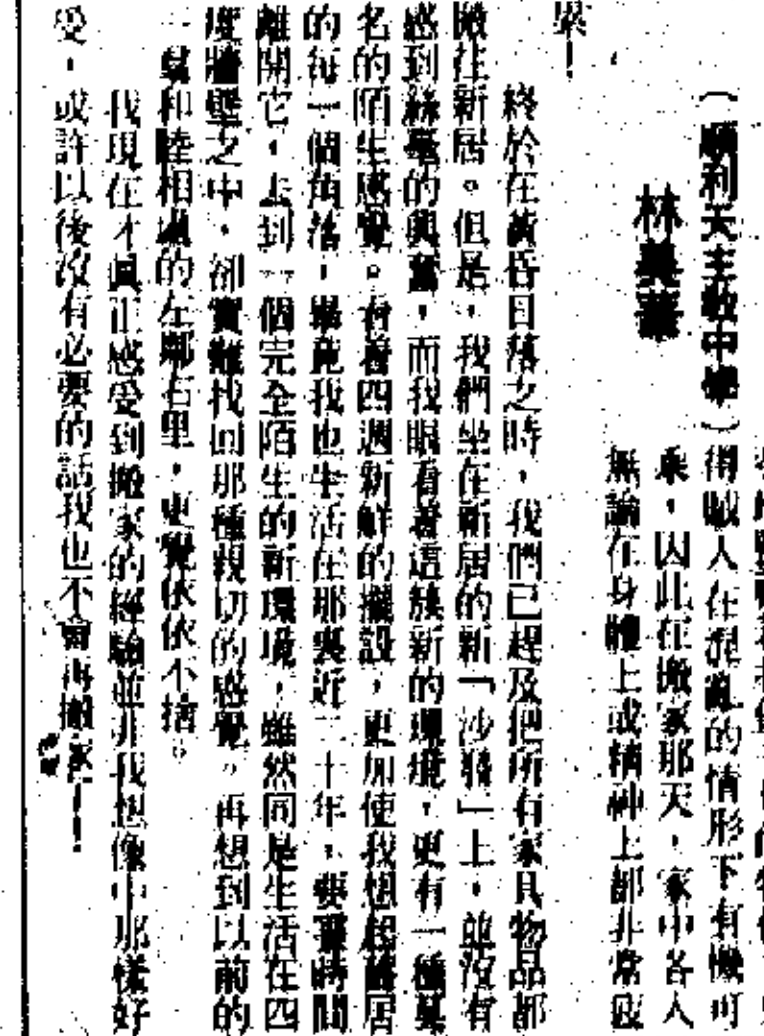 （順利天主教中學）
林美華
得賊人在混亂的情形下有機可
乘，因此在搬家那天，家中各人
無論在身體上或精神上都非常疲
累！
終於在黃昏日落之時，我們已趕及把所有家具物品都
搬往新居。但是，我們坐在新居的新「沙發」上，並沒有
感到絲毫的興奮，而我眼看著這簇新的環境，更有一種莫
名的陌生感覺。看着四週新鮮的擺設，更加使我想起舊居
的每一個角落，畢竟我也生活在那裏近二十年，要霎時間
離開它，去到一個完全陌生的新環境，雖然同是生活在四
度牆壁之中，卻實難找回那種親切的感覺。再想到以前的
一羣和睦相處的左鄰右里，更覺依依不捨。
我現在才眞正感受到搬家的經驗並非我想像中那樣好
受，或許以後沒有必要的話我也不會再搬家了！